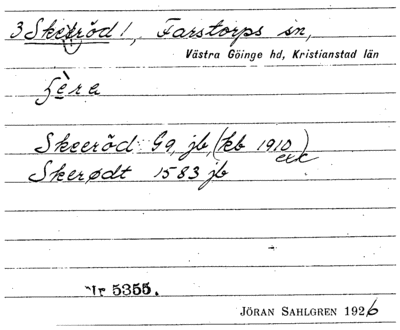 3 Skeeröd 1, Farstorps sn,
Västra Göinge hd, Kristianstad län
Skeeröd: G9, jb, (kb 1910)
Skerødt 1583 jb
Nr 5355.
JÖRAN SAHLGREN 1926